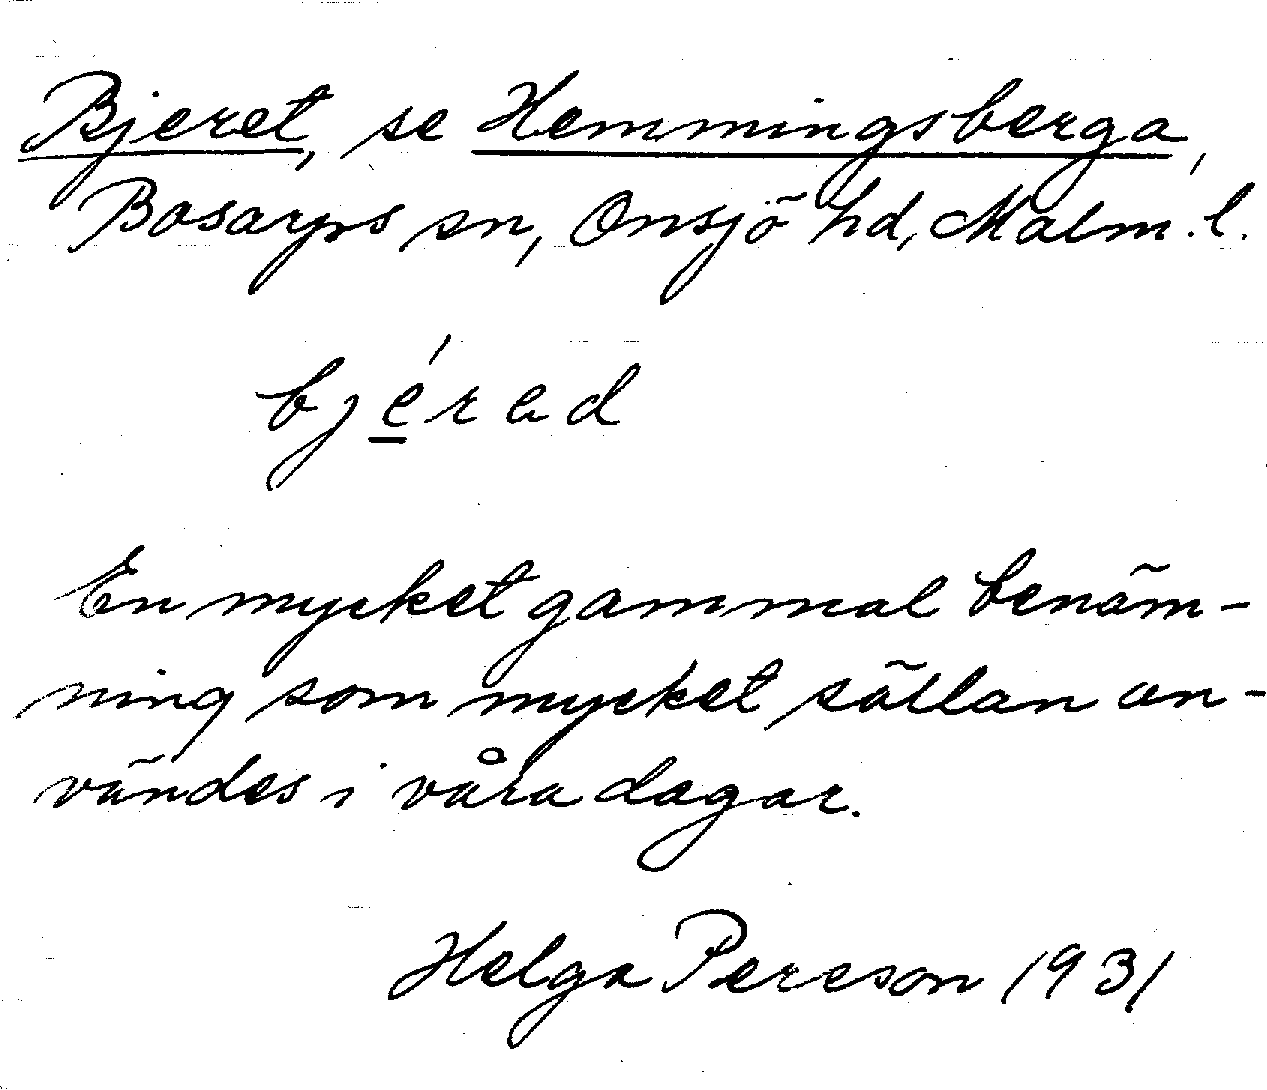 Bjeret, se Hemmingsberga,
Bosarps sn, Onsjö hd, Malm. l.
bjérad
En mycket gammal benäm-
ning som mycket sällan an-
vändes i våra dagar.
Helga Pereson 1931